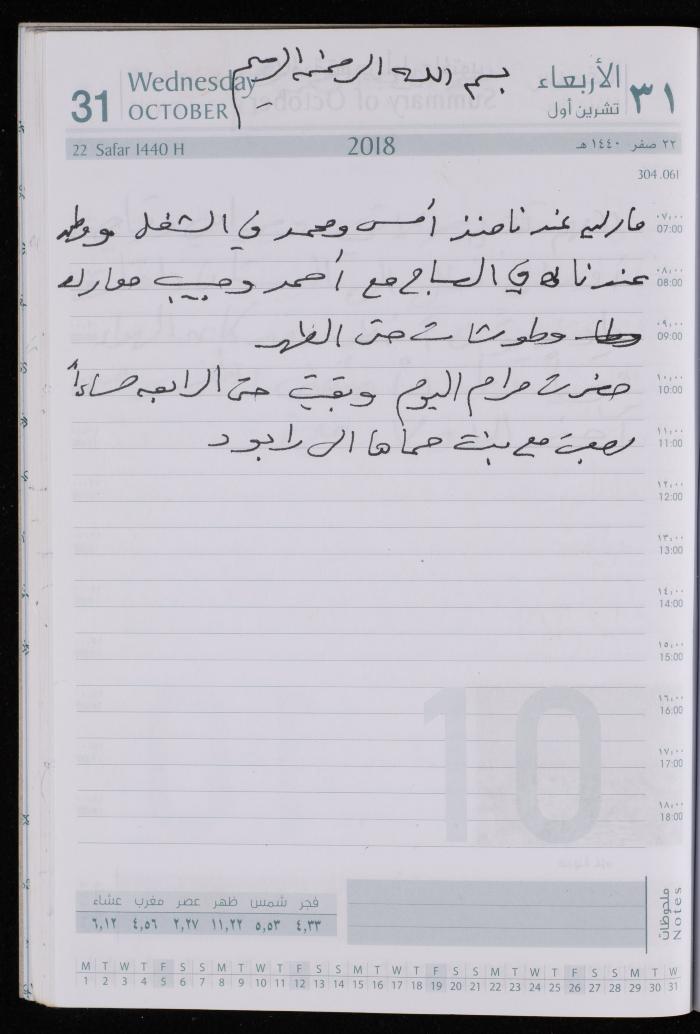 بسم الله الرحمن الرحيم
31 Wednesday OCTOBER
الأربعاء ٣١ تشرين أول
22 Safar 1440 H 2018 ٢٢ صفر ١٤٤٠ هـ
304 .061
ماريه عندنا منذ أمس ومحمد في الشغل ووطن ٠٧:٠٠ 07:00
عندنا في الصباح مع أحمد وحبيب ٠٨:٠٠ 08:00
وطوشات حتى الظهر ٠٩:٠٠ 09:00
حضرت مرام اليوم وبقيت حتى الرابعه مساءاً ١٠:٠٠ 10:00
مع بنت حماها الى ١١:٠٠ 11:00
١٢:٠٠ 12:00
١٣:٠٠ 13:00
١٤:٠٠ 14:00
١٥:٠٠ 15:00
١٦:٠٠ 16:00
١٧:٠٠ 17:00
١٨:٠٠ 18:00
10
فجر شمس ظهر عصر مغرب عشاء
٤,٣٣ ٥,٥٣ ١١,٢٢ ٢,٢٧ ٤,٥٦ ٦,١٢
ملحوظات Notes
M T W T F S S M T W T F S S M T W T F S S M T W T F S S M T W
1 2 3 4 5 6 7 8 9 10 11 12 13 14 15 16 17 18 19 20 21 22 23 24 25 26 27 28 29 30 31